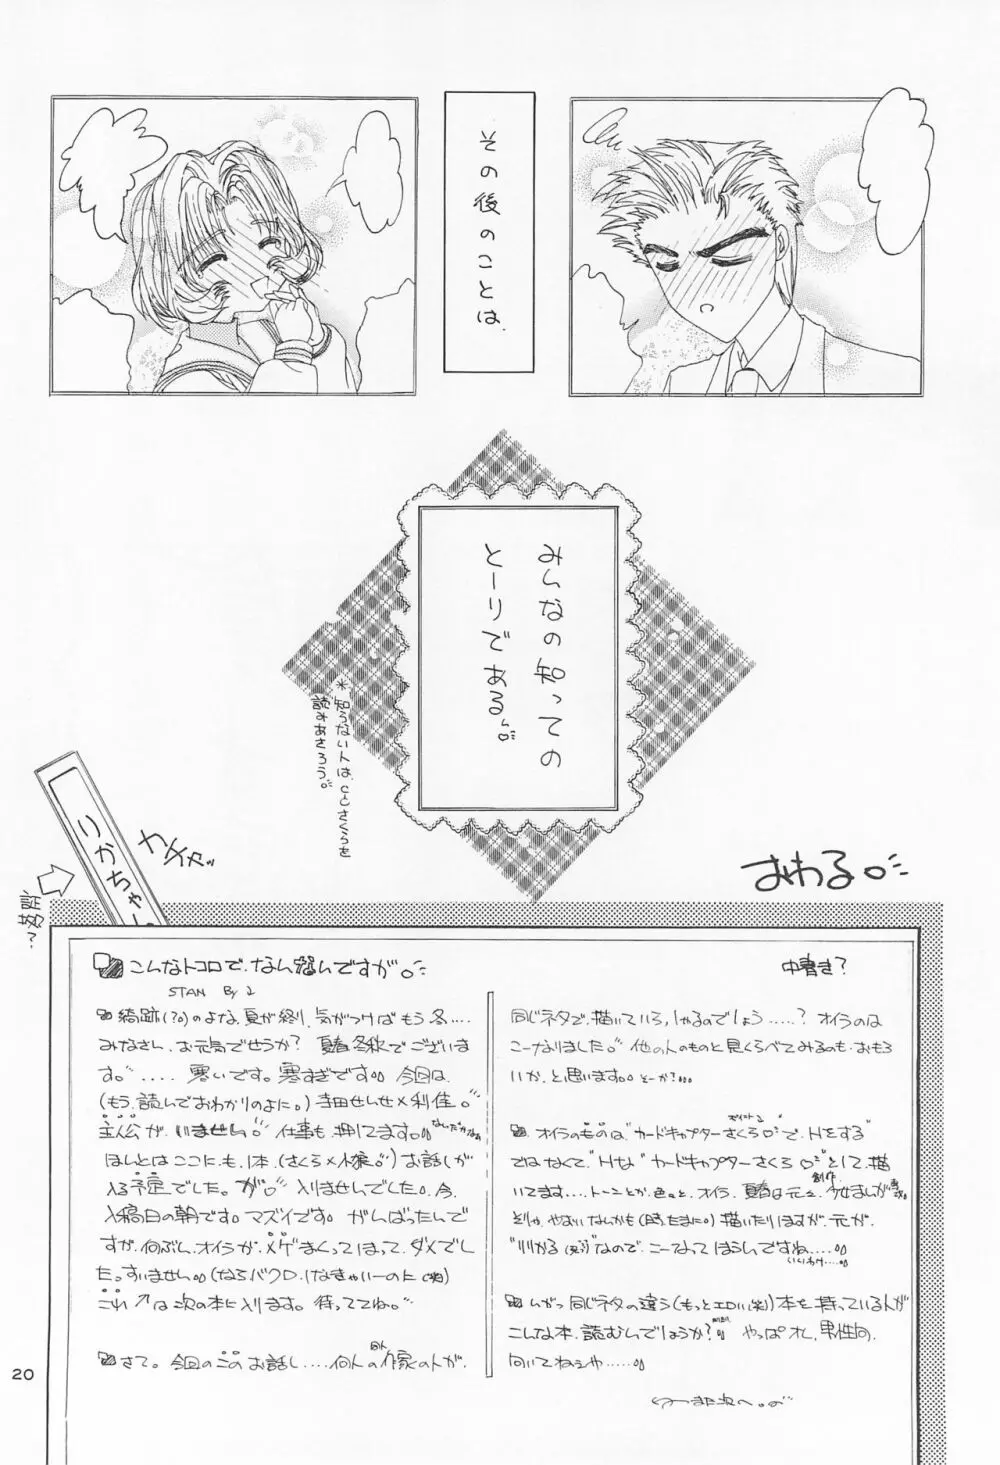 その後のことは、
みんなの知っての
とーりである。
*知らない人は、CCさくらを
読みあさろう。
おわる。
カチャッ
りかちゃ
こんなトコロで、なんなんですが。
STAN By 2
中書き?
のよな、夏が終り、気がつけばもう冬....
みなさん、お元気でせうか? 夏春冬秋でございま
す。..... 寒いです。寒すぎです 今回は、
(もう、読んでおわかりのよに。)寺田せんせ×利佳。
主人公が、いません。 仕事も、押してます。
ほんとはここにも、1本、(さくら×小狼。)お話しが
入る予定でした。が。 入りませんでした。今、
入稿日の朝です。マズイです。 がんばったんで
すが、何ぶん、オイラが、メゲまくってほって、ダメでし
た。すいません。
これ↗は次の本に入ります。待っててね。
さて。今回のこのお話し....何人の作家の人が、
同じネタで、描いていらっしゃるのでしょう.....? オイラのは
こーなりました。 他の人のものと見くらべてみるのも、おもろ
いか、と思います。 とーか?...
オイラのものは"カードキャプターさくら"で、Hをする"
ではなくて、"Hな"カードキャプターさくら"として、描
いてます....トーンとか、色っと、オイラ、夏春は元々、
描いたりしますが、元が、
なので、こーなってほうんですね.....
いいわけ....
同じネタの違う(もっとエロい(笑))本を持っている人が
こんな本、読むんでしょうか? やっぱオレ、男性向、
向いてねぇや.....
また次へ。
20